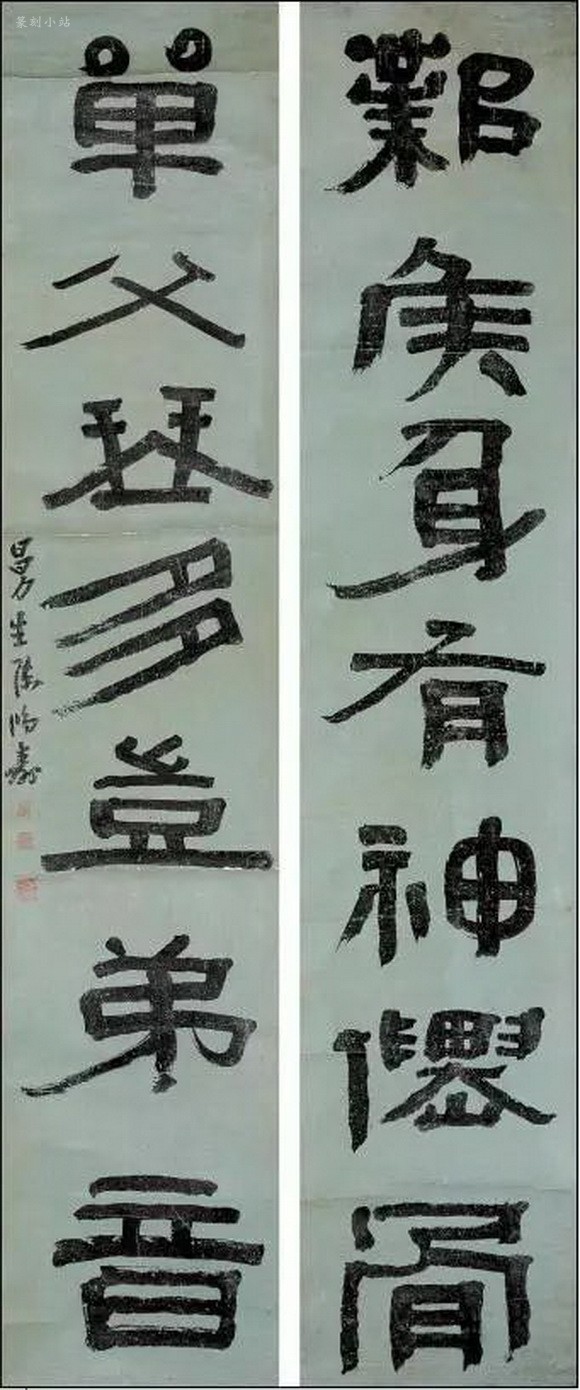 鄴侯身有神僊骨
單父琴多豈弟音
曼生陳鴻壽
篆刻小站